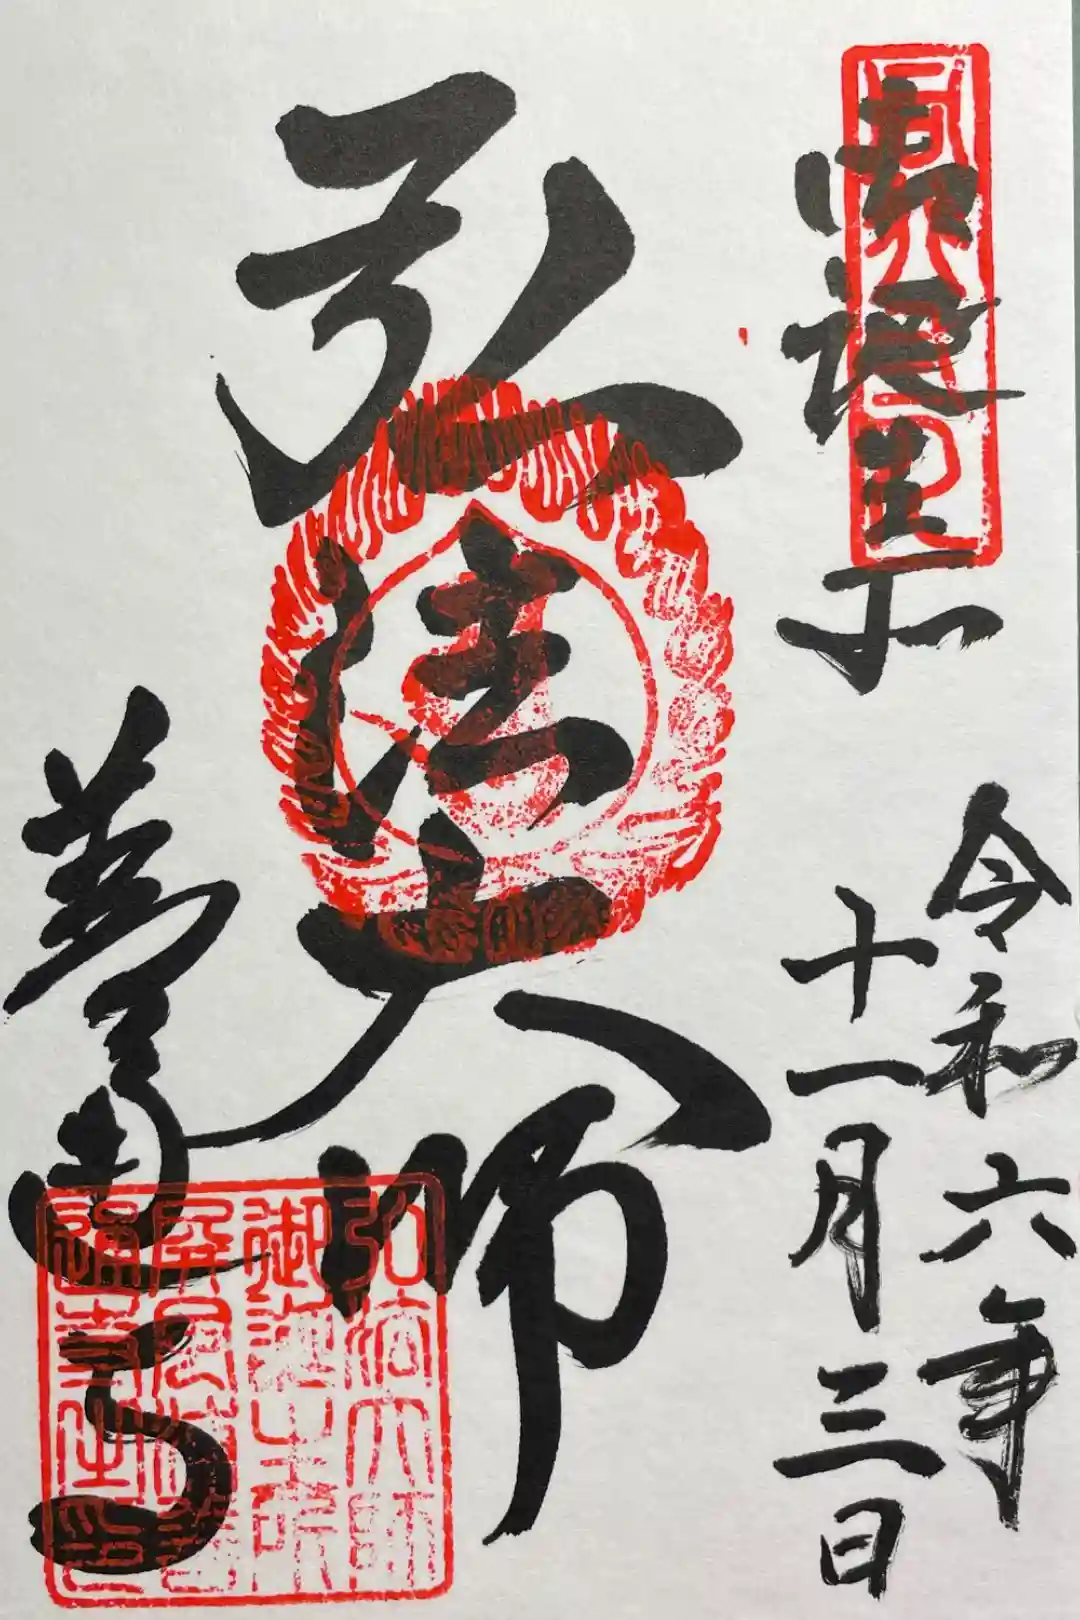 御誕生所
令和六年
十一月三日
弘法大師
善通寺
弘法大師
御誕生院
屏風浦善
通寺之印